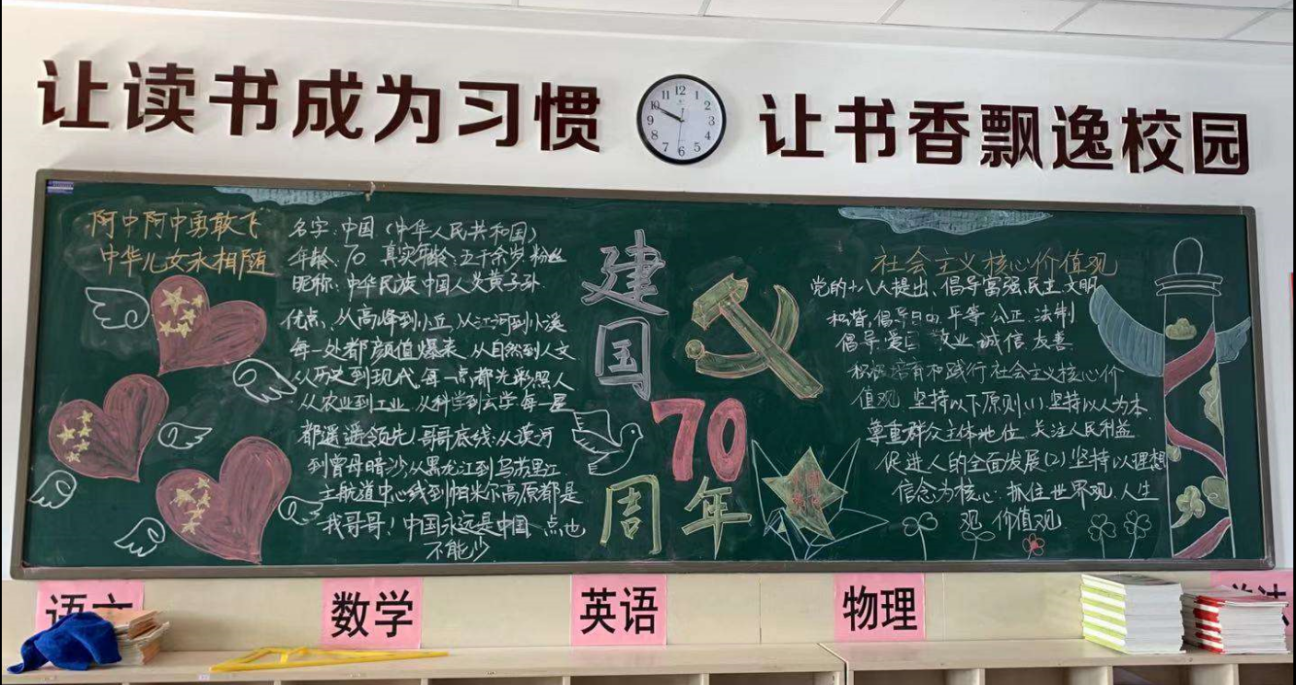 让读书成为习惯
让书香飘逸校园
12
1
2
3
4
5
6
7
8
9
10
11
阿中阿中勇敢飞
中华儿女永相随
名字:中国(中华人民共和国)
年龄:70 真实年龄:五千余岁粉丝
昵称:中华民族中国人炎黄子孙
优点:从高峰到小丘,从江河到小溪
每一处都颜值爆表,从自然到人文
从历史到现代,每一点都光彩照人
从农业到工业,从科学到玄学每一星
都遥遥领先!哥哥底线:从漠河
到曾母暗沙,从黑龙江到乌苏里江
主航道中心线到帕米尔高原都是
我哥哥!中国永远是中国一点也
不能少
建国
70
周年
社会主义核心价值观
党的十八大提出、倡导富强、民主、文明
和谐,倡导自由、平等、公正、法制
倡导爱国 敬业 诚信 友善
积极培育和践行社会主义核心价
值观 坚持以下原则:(1)坚持以人为本,
尊重群众主体地位 关注人民利益
促进人的全面发展(2)坚持以理想
信念为核心,抓住世界观、人生
观、价值观
语文
数学
英语
物理